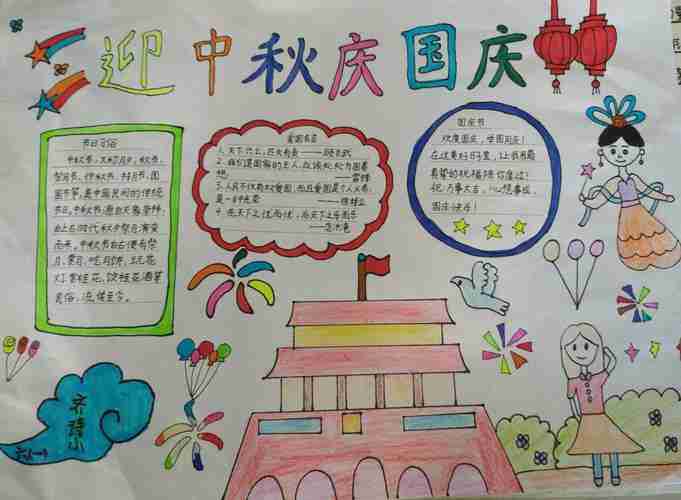 迎中秋庆国庆
节日习俗
中秋节，又称月夕，秋节，
仲秋节，
节，是中国民间的传统
节日。中秋节源自天象崇拜，
由上古时代秋夕祭月演变
而来。中秋节自古便有祭
月、赏月、吃月饼、玩花
灯、赏桂花、饮桂花酒等
民俗，流传至今。
爱国名言
1、天下兴亡，匹夫有责——顾炎武
2、我们是国家的主人，应该处处为国着
想。——雷锋
3、人民不仅有权爱国，而且爱国是个义务，
是一种光荣——徐特立
4、先天下之忧而忧，后天下之乐而乐
——范仲淹
国庆节
欢度国庆，举国同庆！
在这美好时季，让我用最
真挚的祝福陪你度过！
祝：万事大吉，心想事成，
国庆快乐！